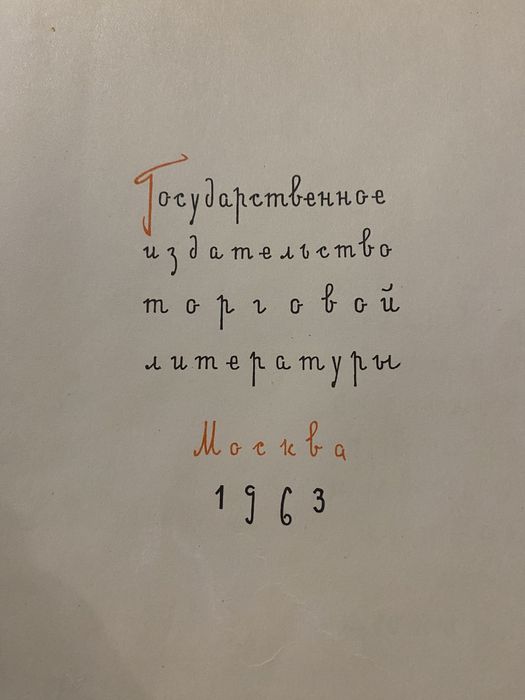 Государственное
издательство
торговой
литературы
Москва
1963